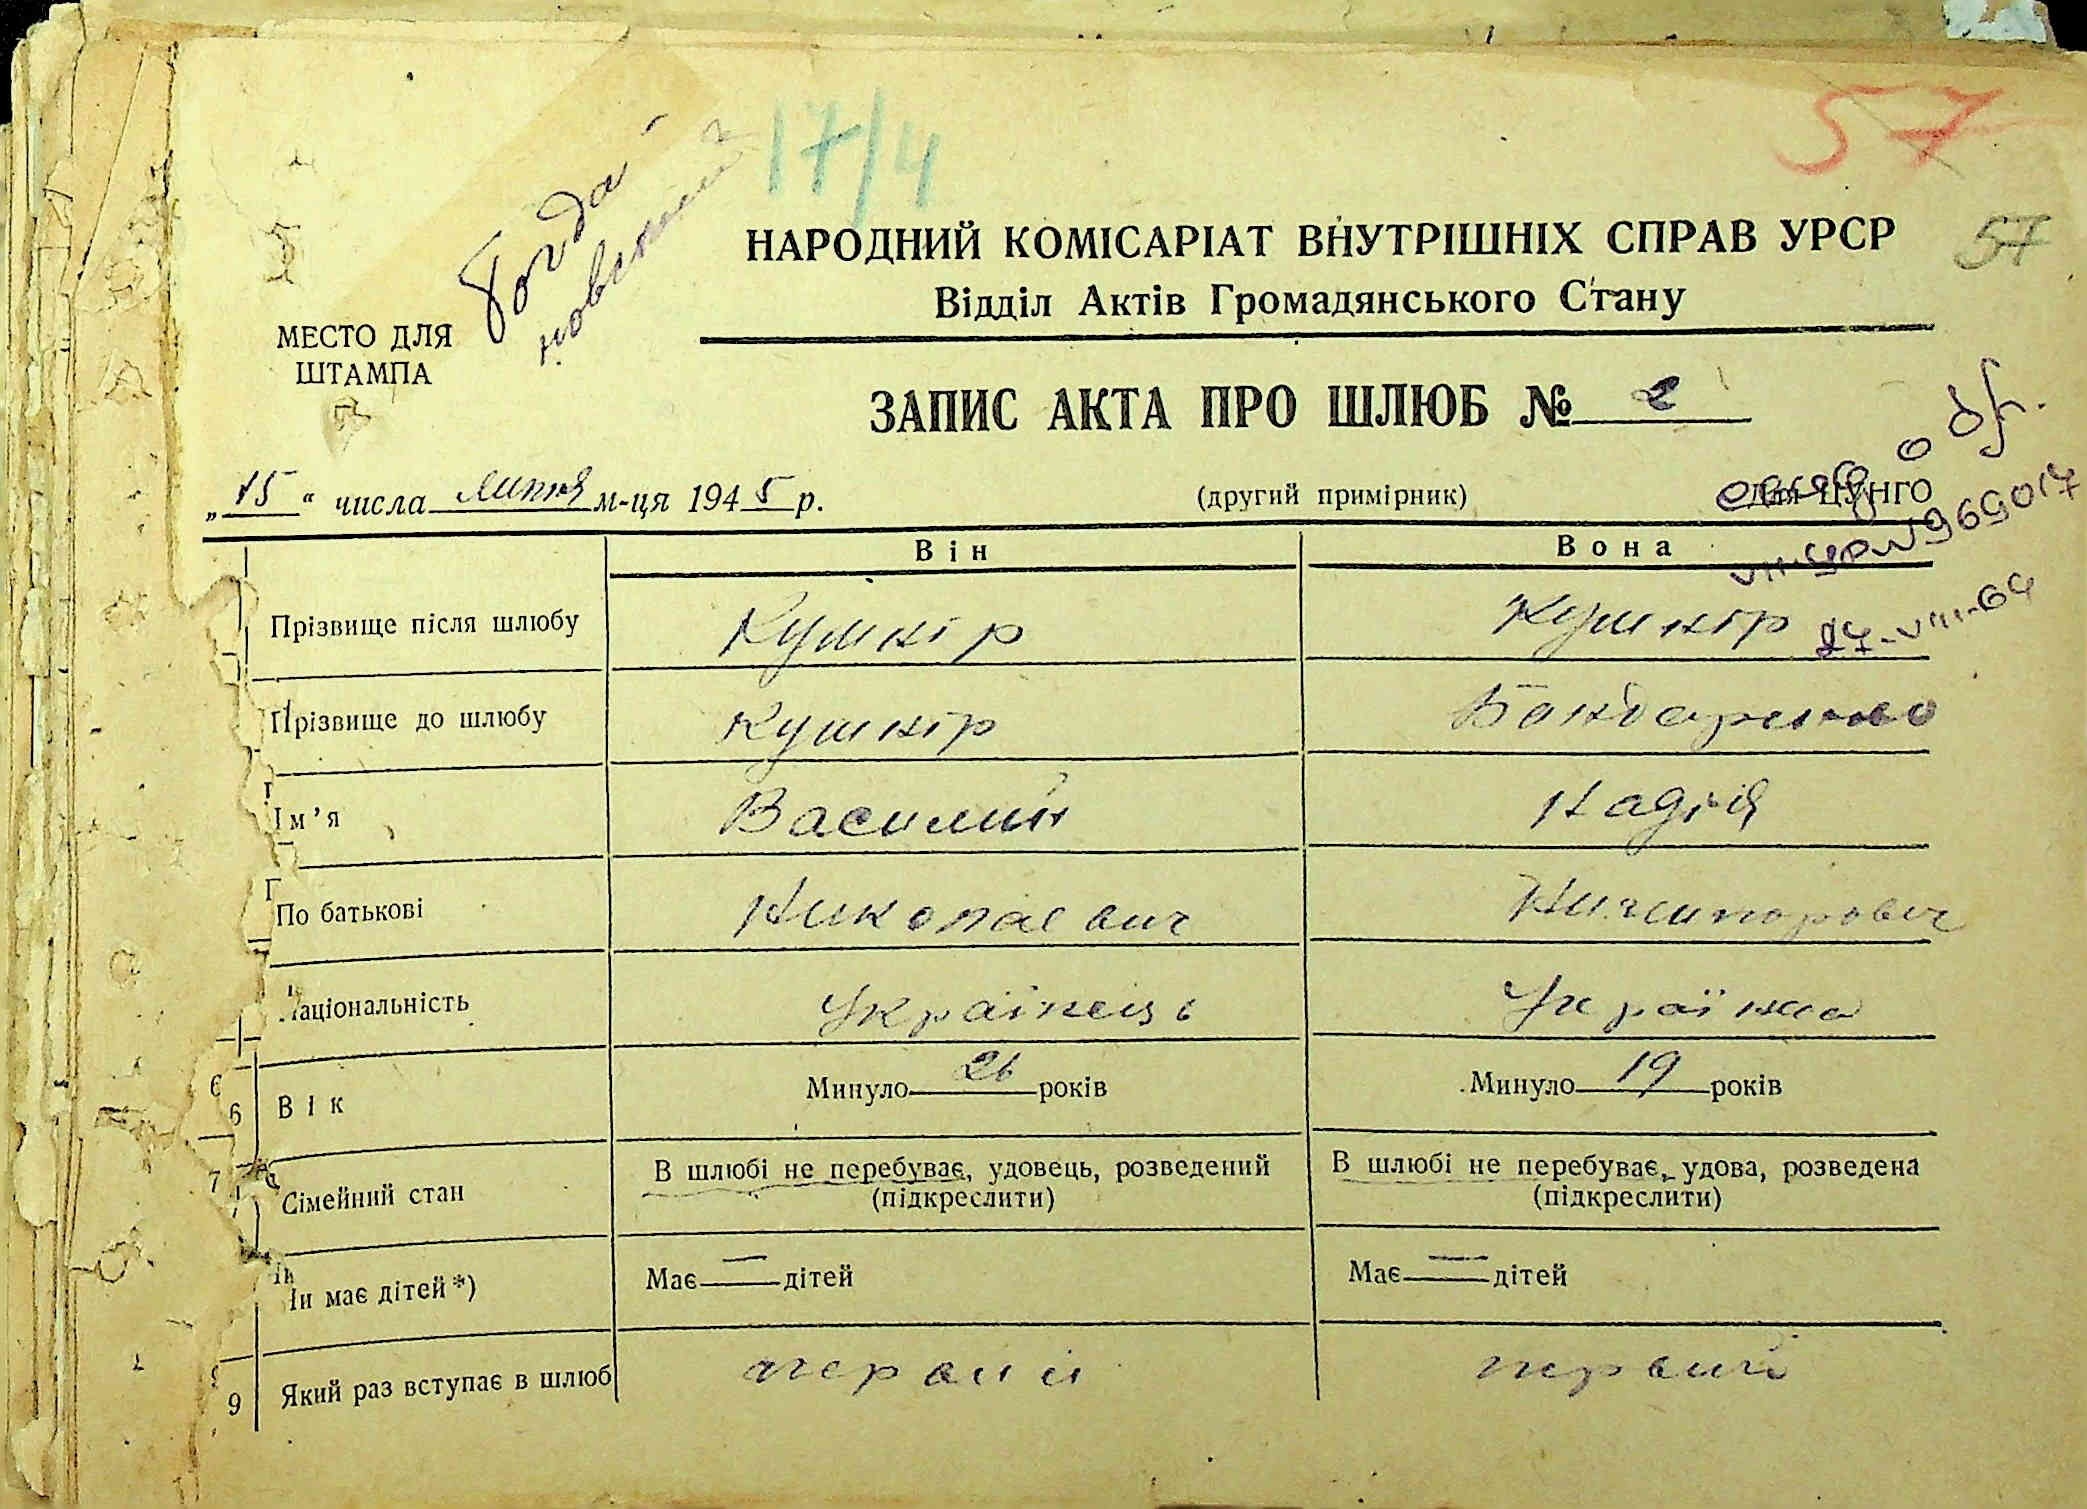 17/4
57
57
Богда-
новський
НАРОДНИЙ КОМІСАРІАТ ВНУТРІШНІХ СПРАВ УРСР
Відділ Актів Громадянського Стану
МЕСТО ДЛЯ
ШТАМПА
ЗАПИС АКТА ПРО ШЛЮБ № 2
„15“ числа липня м-ця 1945 р. (другий примірник) Для ЦУНГО
о бр.
№969017
27-VIII-64
Він Вона
Прізвище після шлюбу Кушнір Кушнір
Прізвище до шлюбу Кушнір Бондаренко
Ім’я Василий Надія
По батькові Николаевич Ничипорович
аціональність Українець Українка
6 Вік Минуло 26 років Минуло 19 років
7 Сімейний стан В шлюбі не перебуває, удовець, розведений В шлюбі не перебуває, удова, розведена
(підкреслити) (підкреслити)
и має дітей*) Має — дітей Має — дітей
9 Який раз вступає в шлюб первий первий